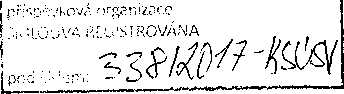 příspěvková organizace
SMLOUVA REGISTROVÁNA
pod číslem: 338/2017-KSÚSV